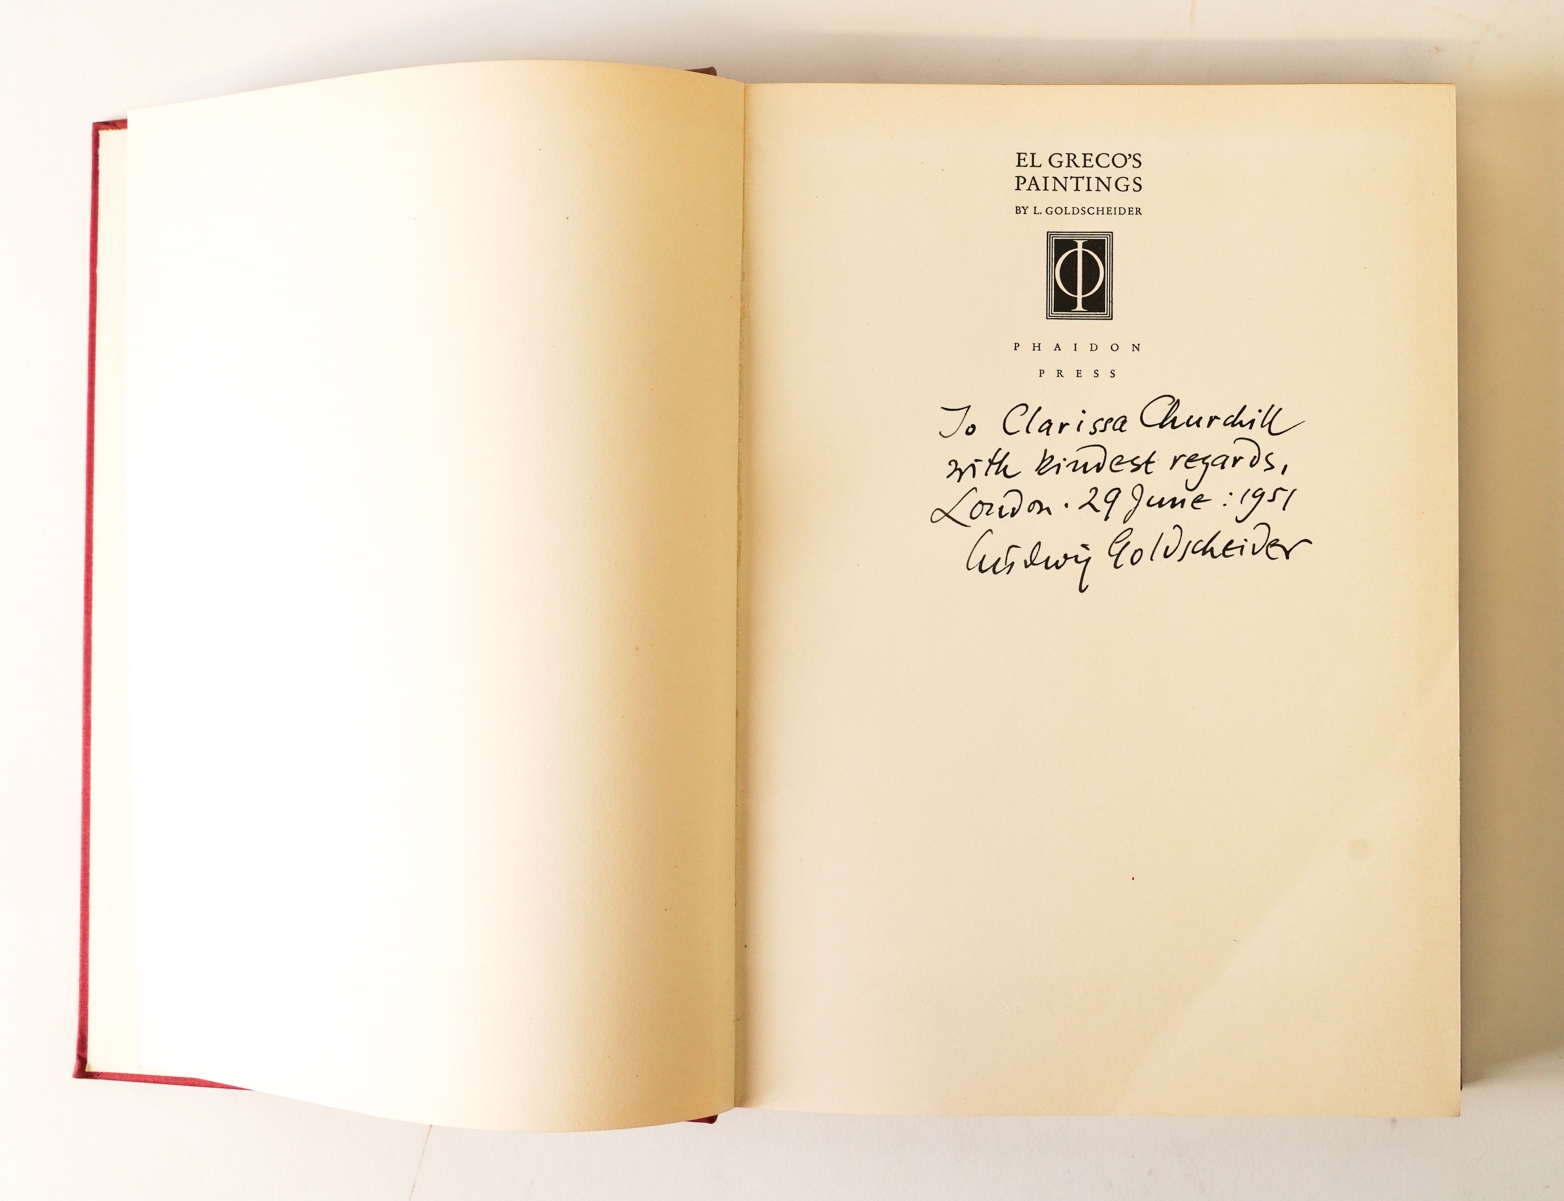 EL GRECO'S
PAINTINGS
BY L. GOLDSCHEIDER
Φ
PHAIDON
PRESS
To Clarissa Churchill
with kindest regards,
London · 29 June : 1951
Ludwig Goldscheider